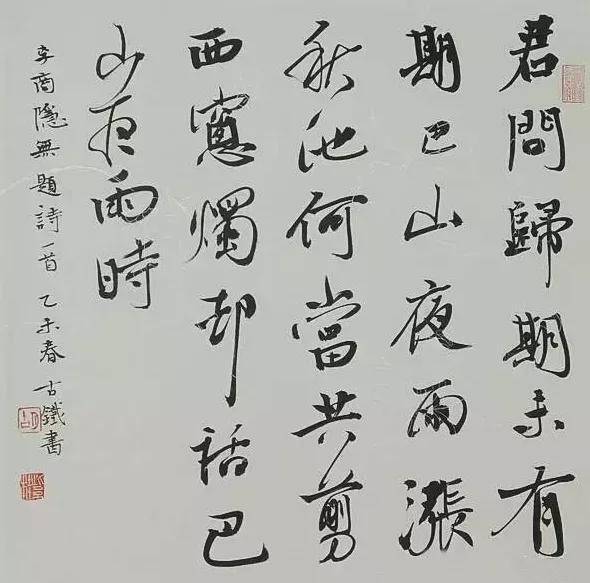 君問歸期未有
期巴山夜雨漲
秋池何當共剪
西窻燭却話巴
山夜雨時
李商隱無題詩一首 乙未春 古鐵書